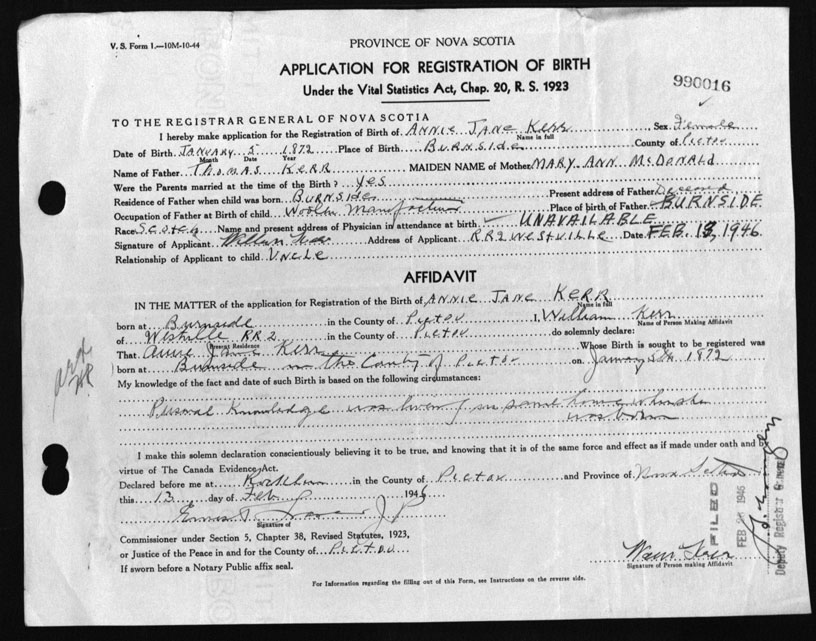 V. S. Form 1.—10M-10-44
PROVINCE OF NOVA SCOTIA
APPLICATION FOR REGISTRATION OF BIRTH
Under the Vital Statistics Act, Chap. 20, R. S. 1923
990016
TO THE REGISTRAR GENERAL OF NOVA SCOTIA
I hereby make application for the Registration of Birth of ANNIE JANE Kerr Sex Female
Name in full
Date of Birth JANUARY 5 1872 Place of Birth BURNSIDE County of Pictou
Month Date Year
Name of Father THOMAS KERR MAIDEN NAME of Mother MARY ANN McDONALD
Were the Parents married at the time of the Birth? Yes
Residence of Father when child was born BURNSIDE Present address of Father Deceased
Occupation of Father at Birth of child Woolen Manufacturer Place of birth of Father BURNSIDE
Race Scotch Name and present address of Physician in attendance at birth UNAVAILABLE
Signature of Applicant William Kerr Address of Applicant RR2 WESTVILLE Date FEB. 13, 1946
Relationship of Applicant to child UNCLE
AFFIDAVIT
IN THE MATTER of the application for Registration of the Birth of ANNIE JANE KERR
Name in full
born at Burnside in the County of Pictou I William Kerr
Name of Person Making Affidavit
of Westville RR2 in the County of Pictou do solemnly declare:
Present Residence
That Annie Jane Kerr Whose Birth is sought to be registered was
born at Burnside in the County of Pictou on January 5th 1872
My knowledge of the fact and date of such Birth is based on the following circumstances:
Personal Knowledge was living in same home when she
was born
I make this solemn declaration conscientiously believing it to be true, and knowing that it is of the same force and effect as if made under oath and by
virtue of The Canada Evidence Act.
Declared before me at in the County of Pictou and Province of Nova Scotia
this 13 day of Feb 1946
J P
Signature of
Commissioner under Section 5, Chapter 38, Revised Statutes, 1923,
or Justice of the Peace in and for the County of Pictou
If sworn before a Notary Public affix seal.
Signature of Person making Affidavit
For Information regarding the filling out of this Form, see Instructions on the reverse side.
FILED
FEB 1946
Deputy Registrar General